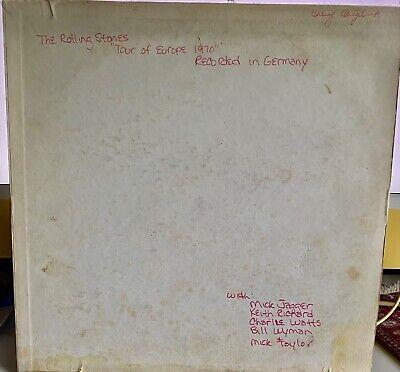 The Rolling Stones
"Tour of Europe 1970"
Recorded in Germany
with
Mick Jagger
Keith Richard
Charlie Watts
Bill Wyman
Mick Taylor